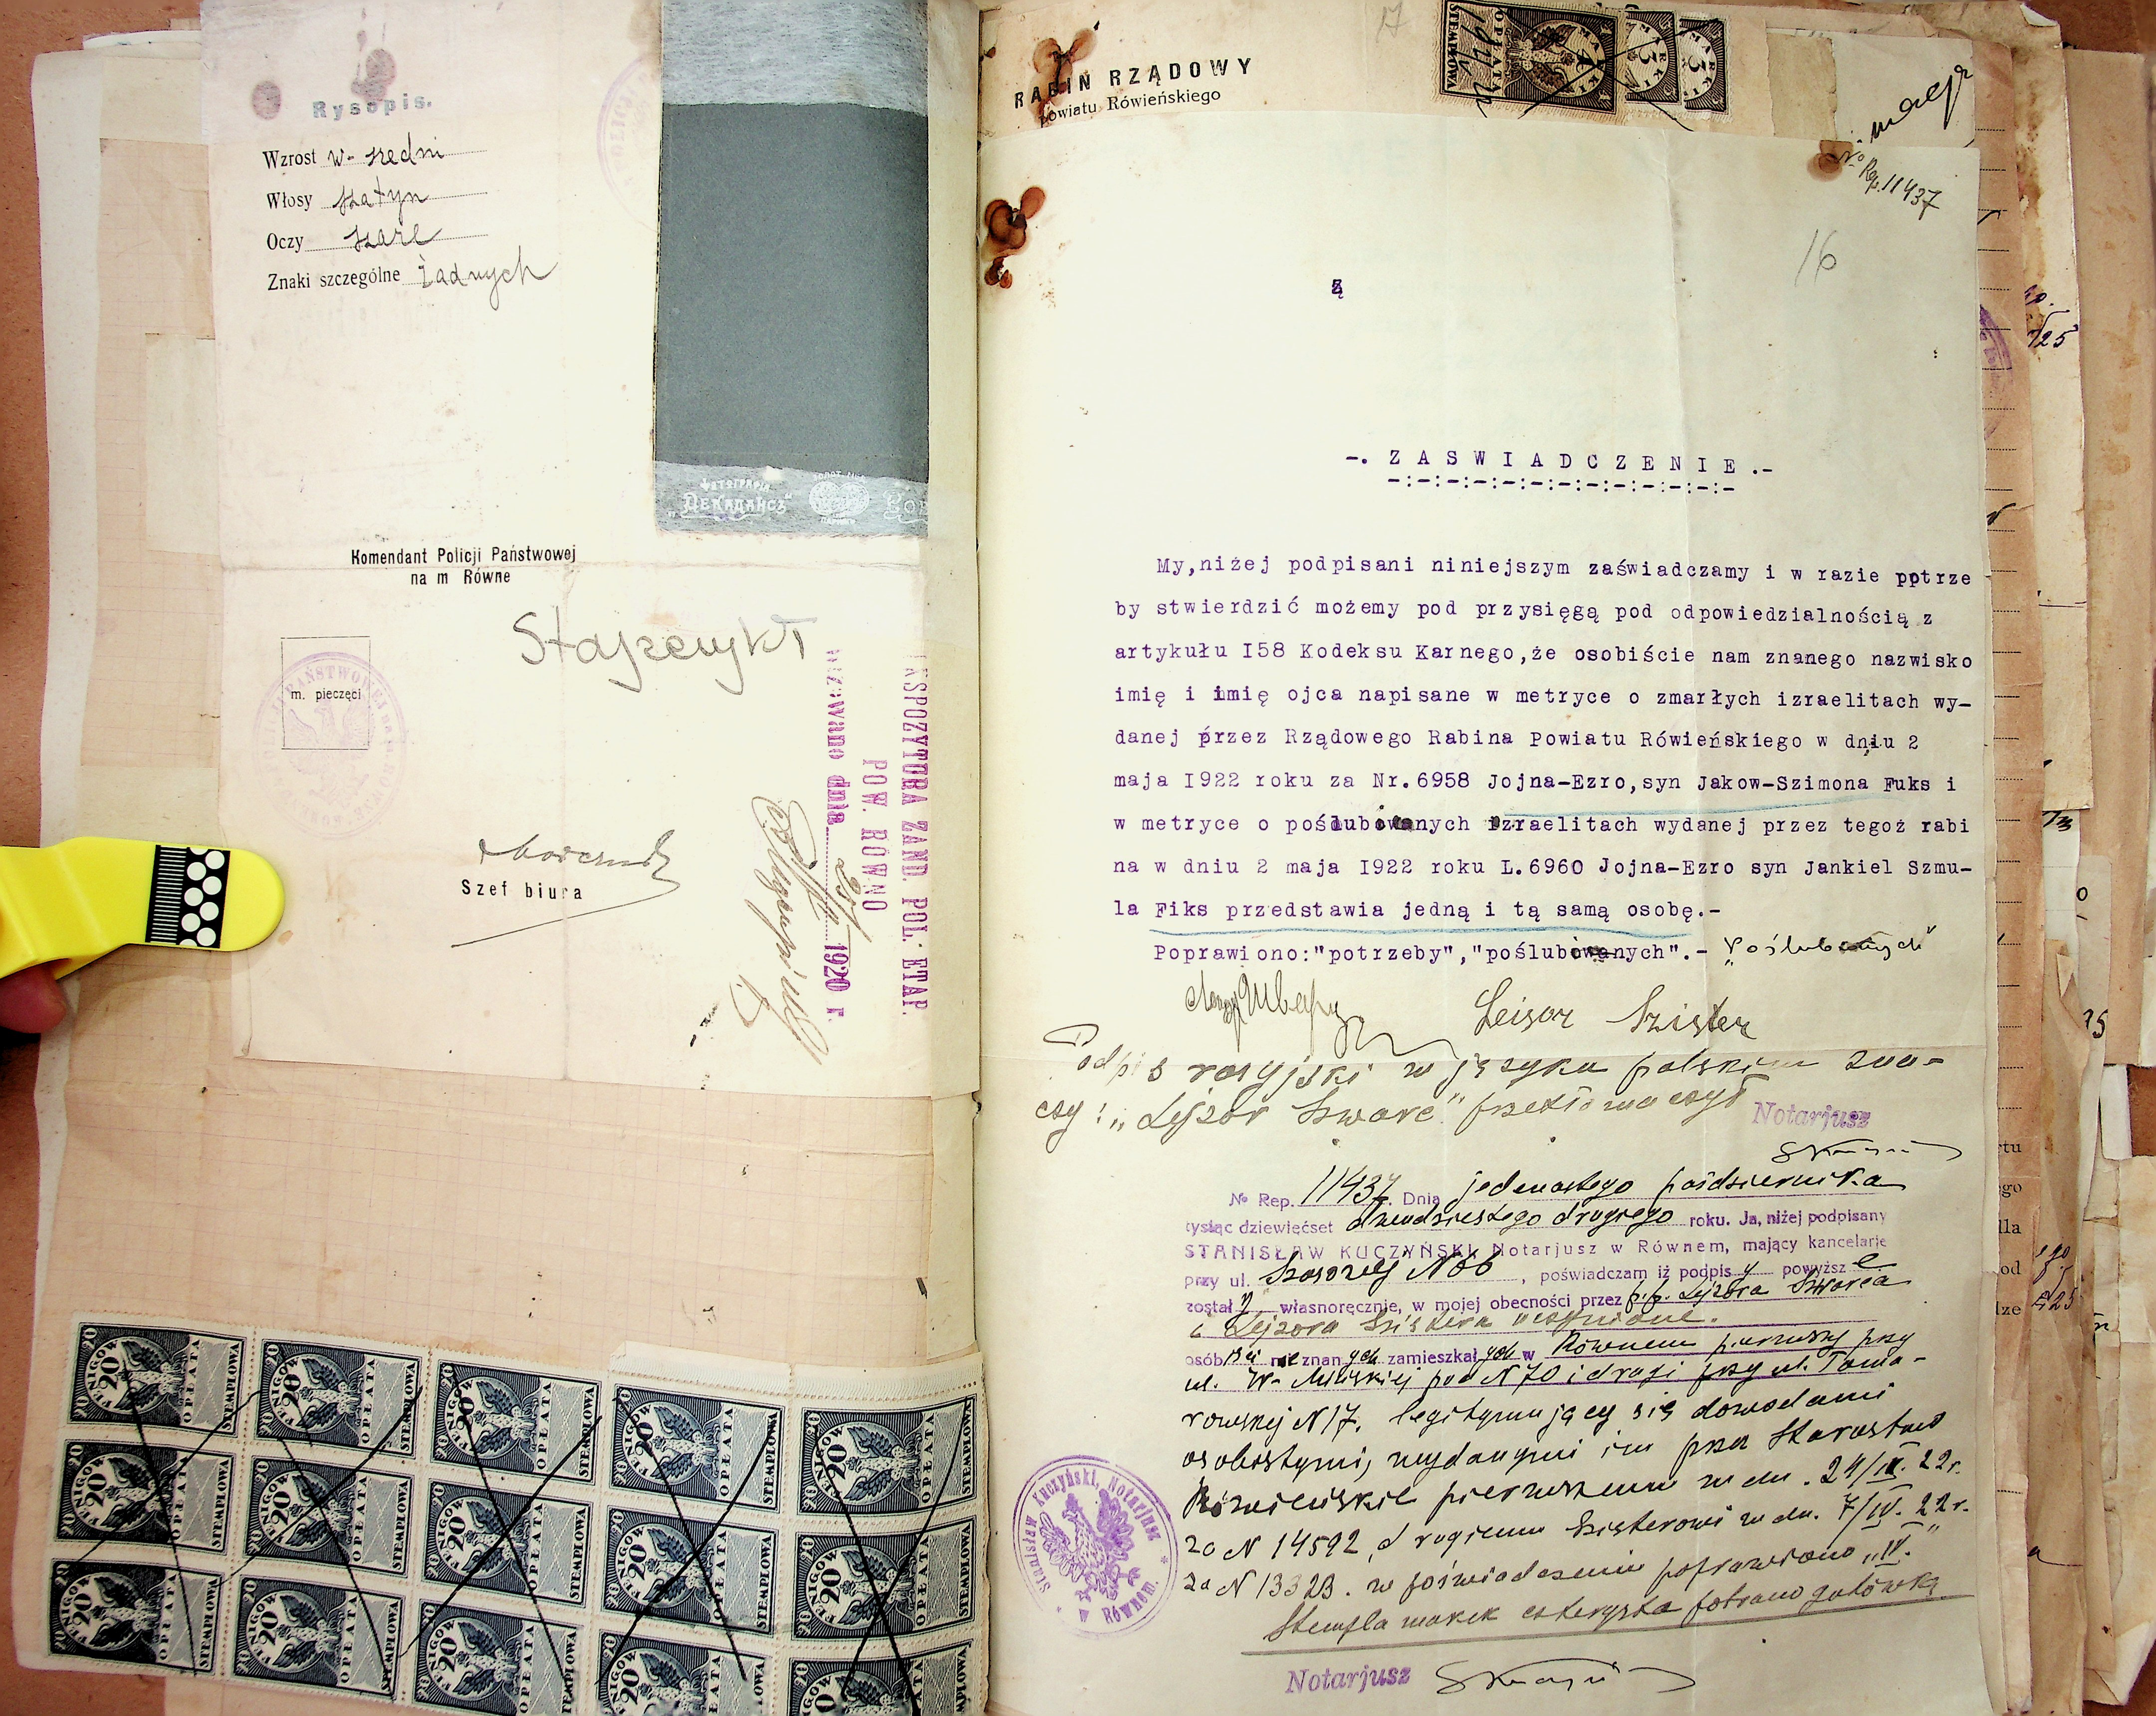 Rysopis.
Wzrost w-szedni
Włosy szatyn
Oczy szare
Znaki szczególne żadnych
Фотографія
"Декадансъ"
Komendant Policji Państwowej
na m Równe
m. pieczęci
Szef biura
EKSPOZYTURA ŻAND. POL. ETAP.
POW. RÓWNO
dnia 1920 r.
20 FENIGÓW OPŁATA STEMPLOWA
RABIN RZĄDOWY
powiatu Rówieńskiego
17
OPŁATA STEMPLOWA
MARKI 3
MARKI 3
No Rep. 11437
16
-. Z A S W I A D C Z E N I E .-
-:-:-:-:-:-:-:-:-:-:-:-:-
My,niżej podpisani niniejszym zaświadczamy i w razie potrze
by stwierdzić możemy pod przysięgą pod odpowiedzialnością z
artykułu I58 Kodeksu Karnego,że osobiście nam znanego nazwisko
imię i imię ojca napisane w metryce o zmarłych izraelitach wy-
danej przez Rządowego Rabina Powiatu Rówieńskiego w dniu 2
maja I922 roku za Nr.6958 Jojna-Ezro,syn Jakow-Szimona Fuks i
w metryce o poślubiwanych izraelitach wydanej przez tegoż rabi
na w dniu 2 maja I922 roku L.6960 Jojna-Ezro syn Jankiel Szmu-
la Fiks przedstawia jedną i tą samą osobę.-
Poprawiono:"potrzeby","poślubiwanych".-
Leisor Szister
Podpis rosyjski w języku polskim zna-
czy: „Lejzor Szwarc" przetłomaczył
Notarjusz
No Rep. 11437 Dnia jedenastego października
tysiąc dziewięćset dwudziestego drugiego roku. Ja, niżej podpisany
STANISŁAW KUCZYŃSKI, Notarjusz w Równem, mający kancelarję
przy ul. Szosowej N 66, poświadczam iż podpisy powyższe
zostały własnoręcznie, w mojej obecności przez p.p. Lejzora Szwarca
i Lejzora Szistera uczynione.
osobiście nieznanych zamieszkałych w Równem pierwszy przy
ul. W- Mińskiej pod N 70 i drugi przy ul. Toma-
rowskej N 17. legitymujący się dowodami
osobistymi, wydanymi im przez Starostwo
Rówieńskie pierwszemu w dn. 24/IV. 22r.
za N 14592, drugiemu Szisterowi w dn. 7/IV. 22r.
za N 13323. w poświadczeniu poprawiono „IV."
Stempla marek czterysta pobrano gotówką.
Stanisław Kuczyński, Notarjusz
w Równem.
Notarjusz